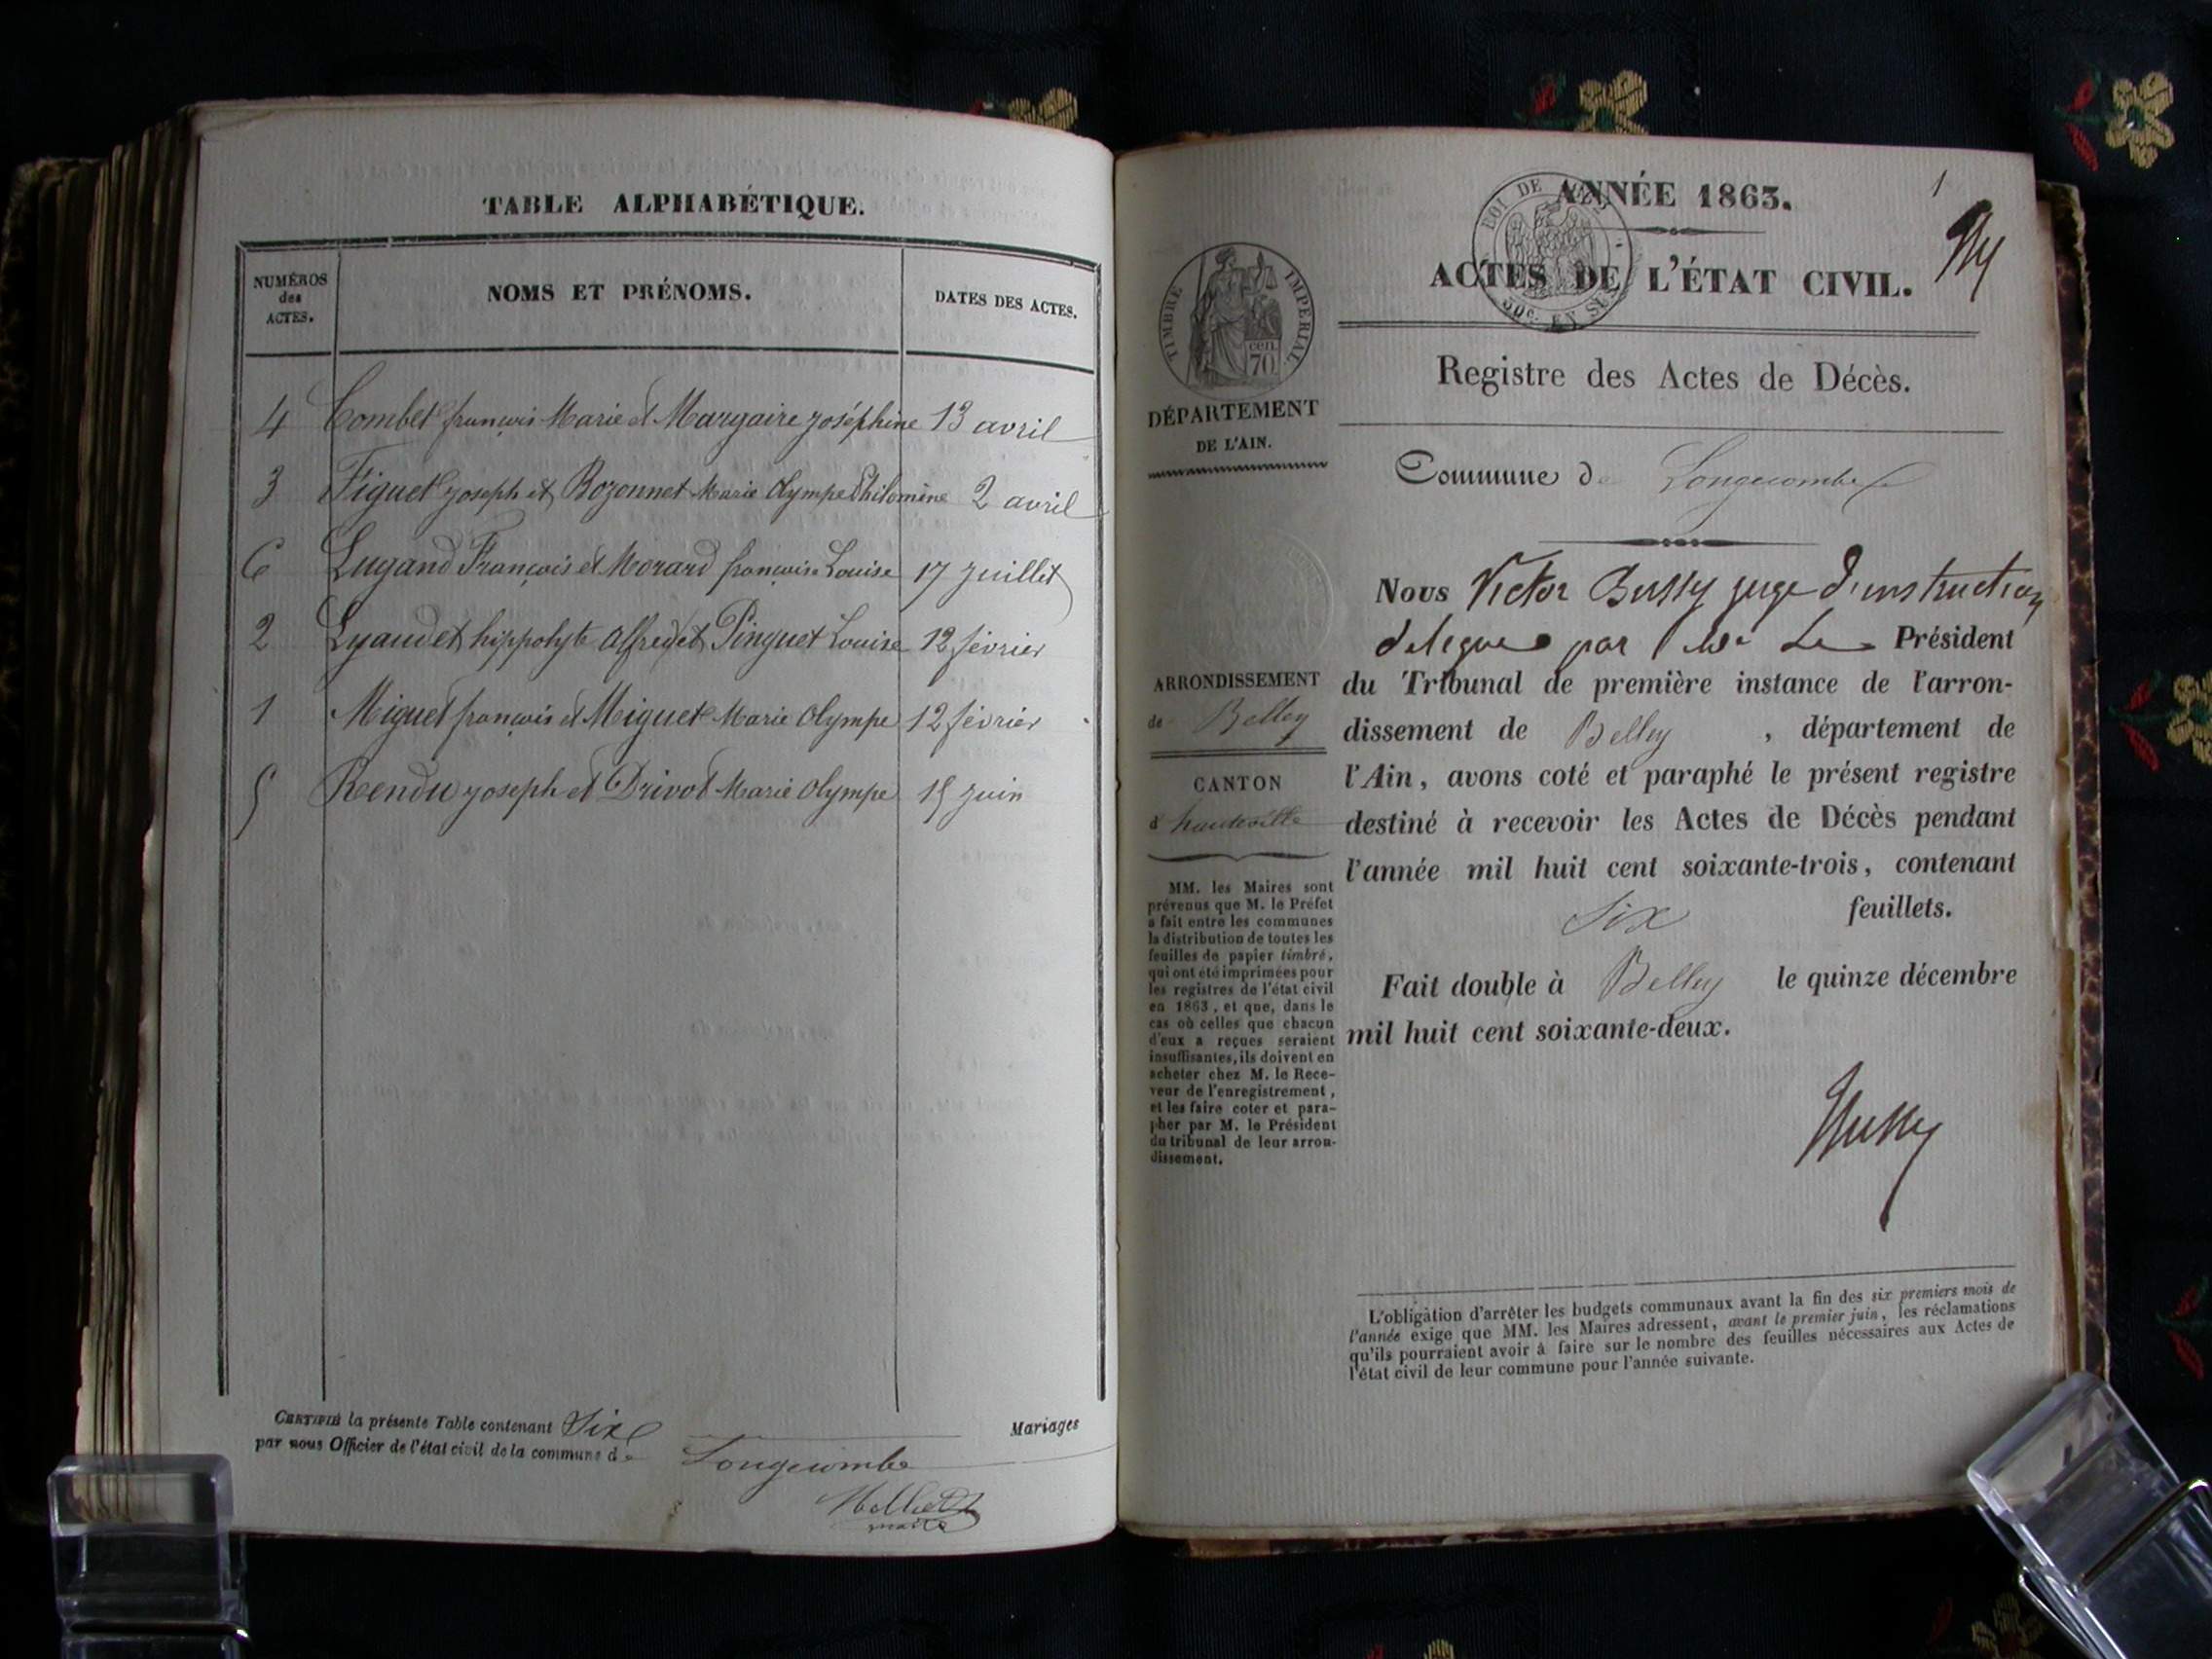 TABLE ALPHABÉTIQUE.
NUMÉROS des ACTES. NOMS ET PRÉNOMS. DATES DES ACTES.
4 Combet françois Marie et Margaire joséphine 13 avril
3 Figuet joseph et Bozonnet Marie Olympe Philomène 2 avril
6 Lugand François et Morard françoise Louise 17 juillet
2 Lyaudet hippolyte alfred et Pinguet Louise 12 février
1 Miguet françois et Miguet Marie Olympe 12 février
5 Rendu joseph et Drivot Marie Olympe 15 juin
CERTIFIÉ la présente Table contenant Six Mariages
par nous Officier de l'état civil de la commune de Longecombe
maire
1
ANNÉE 1863.
ACTES DE L'ÉTAT CIVIL.
TIMBRE IMPÉRIAL
cen.
70
50c. EN SUS
Registre des Actes de Décès.
DÉPARTEMENT
DE L'AIN.
Commune de Longecombe
ARRONDISSEMENT
de Belley
CANTON
d'hauteville
MM. les Maires sont
prévenus que M. le Préfet
a fait entre les communes
la distribution de toutes les
feuilles de papier timbré,
qui ont été imprimées pour
les registres de l'état civil
en 1863, et que, dans le
cas où celles que chacun
d'eux a reçues seraient
insuffisantes, ils doivent en
acheter chez M. le Rece-
veur de l'enregistrement,
et les faire coter et para-
pher par M. le Président
du tribunal de leur arron-
dissement.
Nous Victor Bussy juge d'instruction
délégué par Mr Le Président
du Tribunal de première instance de l'arron-
dissement de Belley, département de
l'Ain, avons coté et paraphé le présent registre
destiné à recevoir les Actes de Décès pendant
l'année mil huit cent soixante-trois, contenant
Six feuillets.
Fait double à Belley le quinze décembre
mil huit cent soixante-deux.
Bussy
L'obligation d'arrêter les budgets communaux avant la fin des six premiers mois de
l'année exige que MM. les Maires adressent, avant le premier juin, les réclamations
qu'ils pourraient avoir à faire sur le nombre des feuilles nécessaires aux Actes de
l'état civil de leur commune pour l'année suivante.